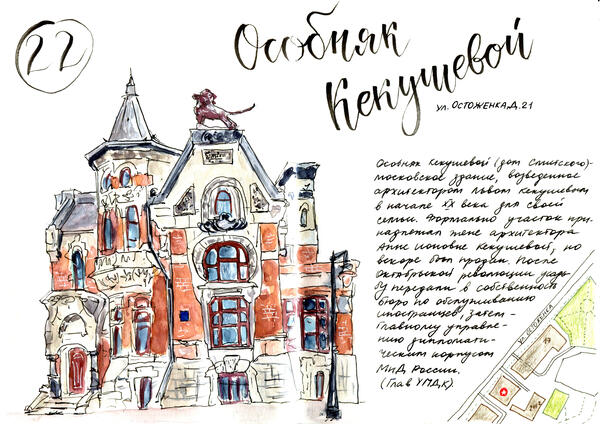 22
Особняк
Кекушевой
ул. Остоженка, д. 21
Особняк Кекушевой (дом Смитского)-
московское здание, возведенное
архитектором Львом Кекушевым
в начале XX века для своей
семьи. Формально участок при-
надлежал жене архитектора
Анне Ионовне Кекушевой, но
вскоре был продан. После
Октябрьской революции усадь-
бу передали в собственность
бюро по обслуживанию
иностранцев, затем -
Главному управле-
нию дипломати-
ческим корпусом
МИД России.
(Глав УПДК)
ул. Остоженка
19